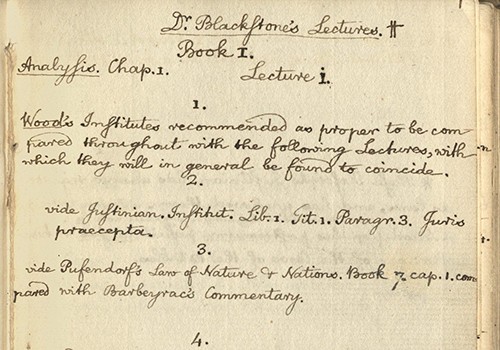 Dr. Blackstone's Lectures. #
Book I.
Analysis. Chap. 1. Lecture i.
1.
Wood's Institutes recommended as proper to be com
pared throughout with the following Lectures, with
which they will in general be found to coincide.
2.
vide Justinian. Institut. Lib. 1. Tit. 1. Paragr. 3. Juris
praecepta.
3.
vide Pufendorf's Law of Nature & Nations. Book 7. cap. 1. com
pared with Barbeyrac's Commentary.
4.